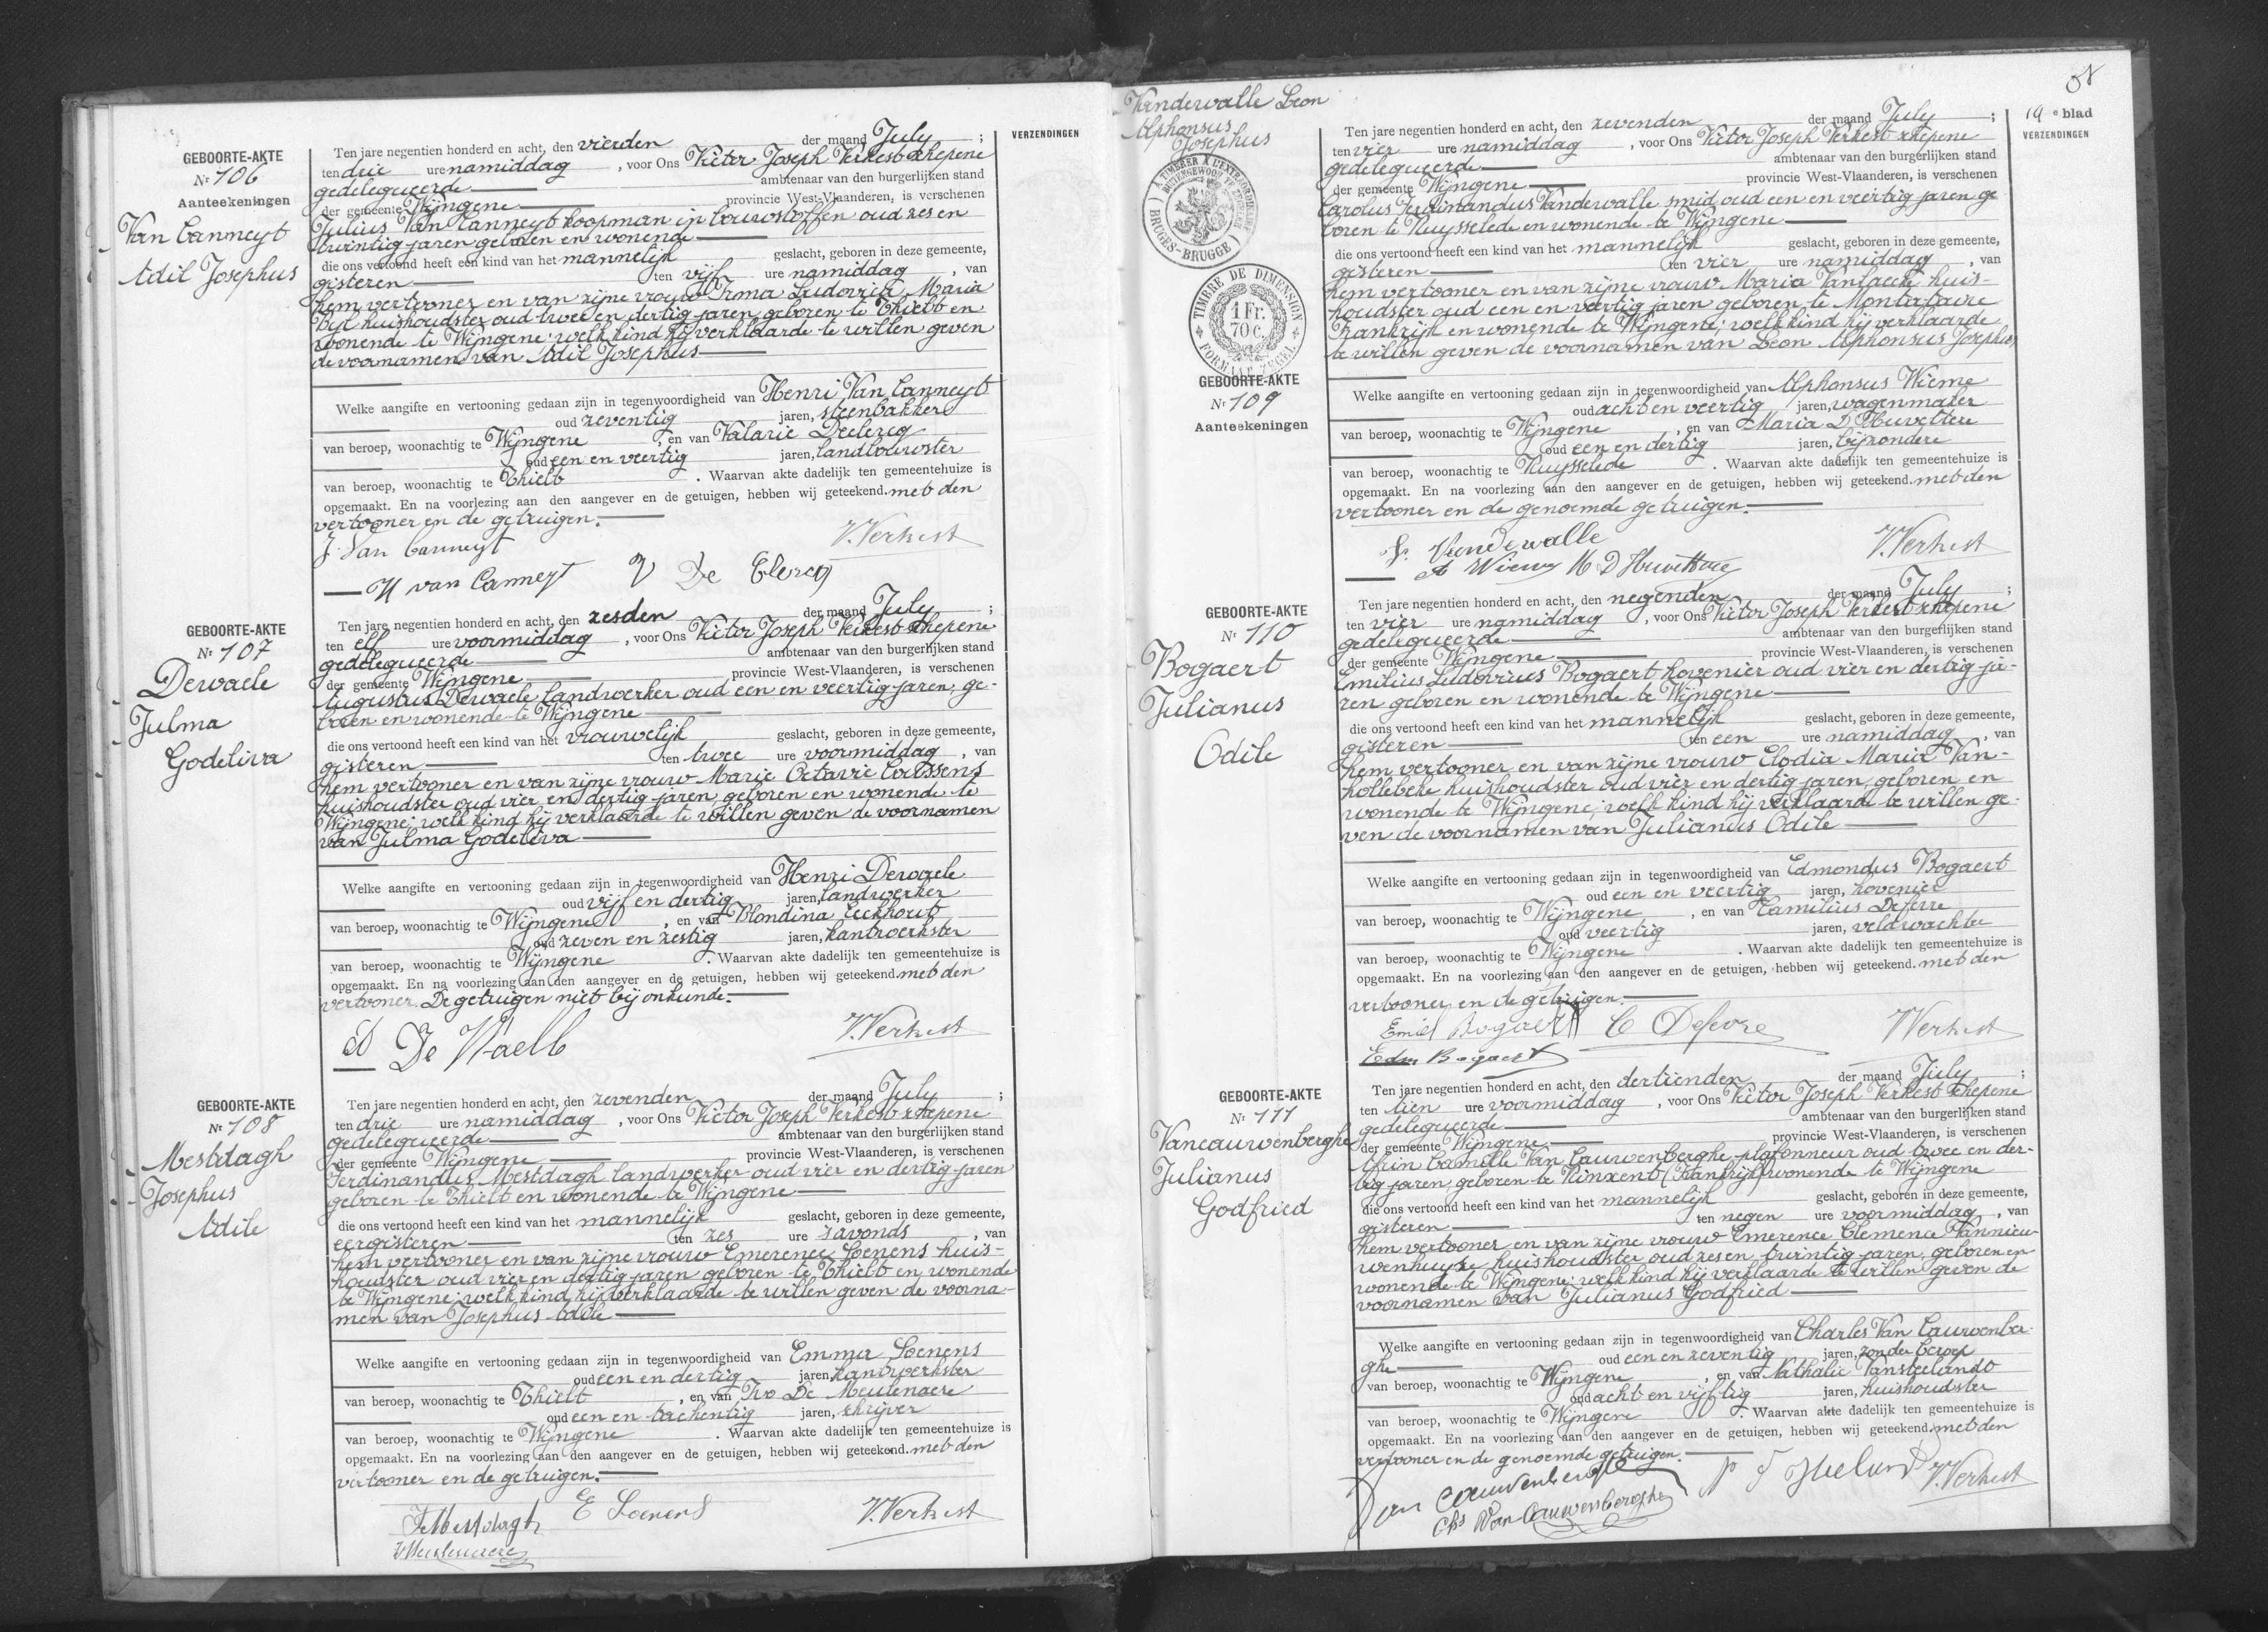 GEBOORTE-AKTE
Nr 106
Aanteekeningen
Van Canneyt
Adil Josephus
VERZENDINGEN
Ten jare negentien honderd en acht, den vierden der maand July ;
ten drie ure namiddag , voor Ons Victor Joseph Verkest schepene
gedelegueerde ambtenaar van den burgerlijken stand
der gemeente Wijngene provincie West-Vlaanderen, is verschenen
Julius Van Canneyt koopman in bouwstoffen oud zes en
twintig jaren geboren en wonende
die ons vertoond heeft een kind van het mannelijk geslacht, geboren in deze gemeente,
gisteren ten vijf ure namiddag , van
hem vertooner en van zijne vrouw Irma Ludovica Maria
huishoudster oud twee en dertig jaren geboren te Thielt en
wonende te Wijngene; welk kind hij verklaarde te willen geven
de voornamen van Adil Josephus
Welke aangifte en vertooning gedaan zijn in tegenwoordigheid van Henri Van Canneyt
oud zeventig jaren, steenbakker
van beroep, woonachtig te Wijngene , en van Valarie Declercq
oud een en veertig jaren, landbouwster
van beroep, woonachtig te Thielt . Waarvan akte dadelijk ten gemeentehuize is
opgemaakt. En na voorlezing aan den aangever en de getuigen, hebben wij geteekend. met den
vertooner en de getuigen.
J. Van Canneyt V. Verkest
H van Canneyt V De Clercq
GEBOORTE-AKTE
Nr 107
Dewaele
Julma
Godeliva
Ten jare negentien honderd en acht, den zesden der maand July ;
ten elf ure voormiddag , voor Ons Victor Joseph Verkest schepene
gedelegueerde ambtenaar van den burgerlijken stand
der gemeente Wijngene provincie West-Vlaanderen, is verschenen
Augustus Dewaele landwerker oud een en veertig jaren, ge-
boren en wonende te Wijngene
die ons vertoond heeft een kind van het vrouwelijk geslacht, geboren in deze gemeente,
gisteren ten twee ure voormiddag , van
hem vertooner en van zijne vrouw Marie Octavie Coussens
huishoudster oud vier en dertig jaren, geboren en wonende te
Wijngene; welk kind hij verklaarde te willen geven de voornamen
van Julma Godeliva
Welke aangifte en vertooning gedaan zijn in tegenwoordigheid van Henri Dewaele
oud vijf en dertig jaren, landwerker
van beroep, woonachtig te Wijngene , en van Blondina Eeckhout
oud zeven en zestig jaren, kantwerkster
van beroep, woonachtig te Wijngene . Waarvan akte dadelijk ten gemeentehuize is
opgemaakt. En na voorlezing aan den aangever en de getuigen, hebben wij geteekend. met den
vertooner. De getuigen niet bij onkunde.
De Waele V. Verkest
GEBOORTE-AKTE
Nr 108
Mestdagh
Josephus
Adile
Ten jare negentien honderd en acht, den zevenden der maand July ;
ten drie ure namiddag , voor Ons Victor Joseph Verkest schepene
gedelegueerde ambtenaar van den burgerlijken stand
der gemeente Wijngene provincie West-Vlaanderen, is verschenen
Ferdinandus Mestdagh landwerker oud vier en dertig jaren
geboren te Thielt en wonende te Wijngene
die ons vertoond heeft een kind van het mannelijk geslacht, geboren in deze gemeente,
eergisteren ten zes ure 's avonds , van
hem vertooner en van zijne vrouw Emerence Soenens huis-
houdster oud vier en dertig jaren geboren te Thielt en wonende
te Wijngene; welk kind hij verklaarde te willen geven de voorna-
men van Josephus Adile
Welke aangifte en vertooning gedaan zijn in tegenwoordigheid van Emma Soenens
oud een en dertig jaren, kantwerkster
van beroep, woonachtig te Thielt , en van Ivo De Meulenaere
oud een en tachentig jaren, schrijver
van beroep, woonachtig te Wijngene . Waarvan akte dadelijk ten gemeentehuize is
opgemaakt. En na voorlezing aan den aangever en de getuigen, hebben wij geteekend. met den
vertooner en de getuigen.
F. Mestdagh E Soenens V. Verkest
Vandewalle Leon
Alphonsus
Josephus
A TIMBRER A L'EXTRAORDINAIRE
BRUGES-BRUGGE
TIMBRE DE DIMENSION
1 Fr.
70 C.
FORMAAT ZEGEL
GEBOORTE-AKTE
Nr 109
Aanteekeningen
19e blad
VERZENDINGEN
Ten jare negentien honderd en acht, den zevenden der maand July ;
ten vier ure namiddag , voor Ons Victor Joseph Verkest schepene
gedelegueerde ambtenaar van den burgerlijken stand
der gemeente Wijngene provincie West-Vlaanderen, is verschenen
Carolus Ferdinandus Vandewalle smid oud een en veertig jaren ge
boren te Ruysselede en wonende te Wijngene
die ons vertoond heeft een kind van het mannelijk geslacht, geboren in deze gemeente,
gisteren ten vier ure namiddag , van
hem vertooner en van zijne vrouw Maria Vanlaecke huis-
houdster oud een en veertig jaren geboren te Montataire
Frankrijk en wonende te Wijngene; welk kind hij verklaarde
te willen geven de voornamen van Leon Alphonsus Josephus
Welke aangifte en vertooning gedaan zijn in tegenwoordigheid van Alphonsus Wieme
oud acht en veertig jaren, wagenmaker
van beroep, woonachtig te Wijngene , en van Maria D'Huvettere
oud een en dertig jaren, bijzondere
van beroep, woonachtig te Ruysselede . Waarvan akte dadelijk ten gemeentehuize is
opgemaakt. En na voorlezing aan den aangever en de getuigen, hebben wij geteekend. met den
vertooner en de genoemde getuigen.
Vandewalle V. Verkest
A Wieme M D'Huvettere
GEBOORTE-AKTE
Nr 110
Bogaert
Julianus
Odile
Ten jare negentien honderd en acht, den negenden der maand July ;
ten vier ure namiddag , voor Ons Victor Joseph Verkest schepene
gedelegueerde ambtenaar van den burgerlijken stand
der gemeente Wijngene provincie West-Vlaanderen, is verschenen
Emilius Ludovicus Bogaert hovenier oud vier en dertig ja-
ren geboren en wonende te Wijngene
die ons vertoond heeft een kind van het mannelijk geslacht, geboren in deze gemeente,
gisteren ten een ure namiddag , van
hem vertooner en van zijne vrouw Elodia Maria Van-
hollebeke huishoudster oud vier en dertig jaren, geboren en
wonende te Wijngene; welk kind hij verklaarde te willen ge-
ven de voornamen van Julianus Odile
Welke aangifte en vertooning gedaan zijn in tegenwoordigheid van Edmondus Bogaert
oud een en veertig jaren, hovenier
van beroep, woonachtig te Wijngene , en van Camilius Defevre
oud veertig jaren, veldwachter
van beroep, woonachtig te Wijngene . Waarvan akte dadelijk ten gemeentehuize is
opgemaakt. En na voorlezing aan den aangever en de getuigen, hebben wij geteekend. met den
vertooner en de getuigen.
Emiel Bogaert C Defevre V. Verkest
Edm Bogaert
GEBOORTE-AKTE
Nr 111
Vancauwenberghe
Julianus
Godfried
Ten jare negentien honderd en acht, den dertienden der maand July ;
ten tien ure voormiddag , voor Ons Victor Joseph Verkest schepene
gedelegueerde ambtenaar van den burgerlijken stand
der gemeente Wijngene provincie West-Vlaanderen, is verschenen
Camille Van Cauwenberghe plafonneur oud twee en der-
tig jaren, geboren te Rinxent (Frankrijk) wonende te Wijngene
die ons vertoond heeft een kind van het mannelijk geslacht, geboren in deze gemeente,
gisteren ten negen ure voormiddag , van
hem vertooner en van zijne vrouw Emerence Clemence Vannieu-
wenhuyze huishoudster oud zes en twintig jaren, geboren en
wonende te Wijngene; welk kind hij verklaarde te willen geven de
voornamen van Julianus Godfried
Welke aangifte en vertooning gedaan zijn in tegenwoordigheid van Charles Van Cauwenber-
ghe oud een en zeventig jaren, zonder beroep
van beroep, woonachtig te Wijngene , en van Nathalie Vansteelandt
oud acht en vijftig jaren, huishoudster
van beroep, woonachtig te Wijngene . Waarvan akte dadelijk ten gemeentehuize is
opgemaakt. En na voorlezing aan den aangever en de getuigen, hebben wij geteekend. met den
vertooner en de genoemde getuigen.
Van Cauwenberghe V. Verkest
Chs Van Cauwenberghe